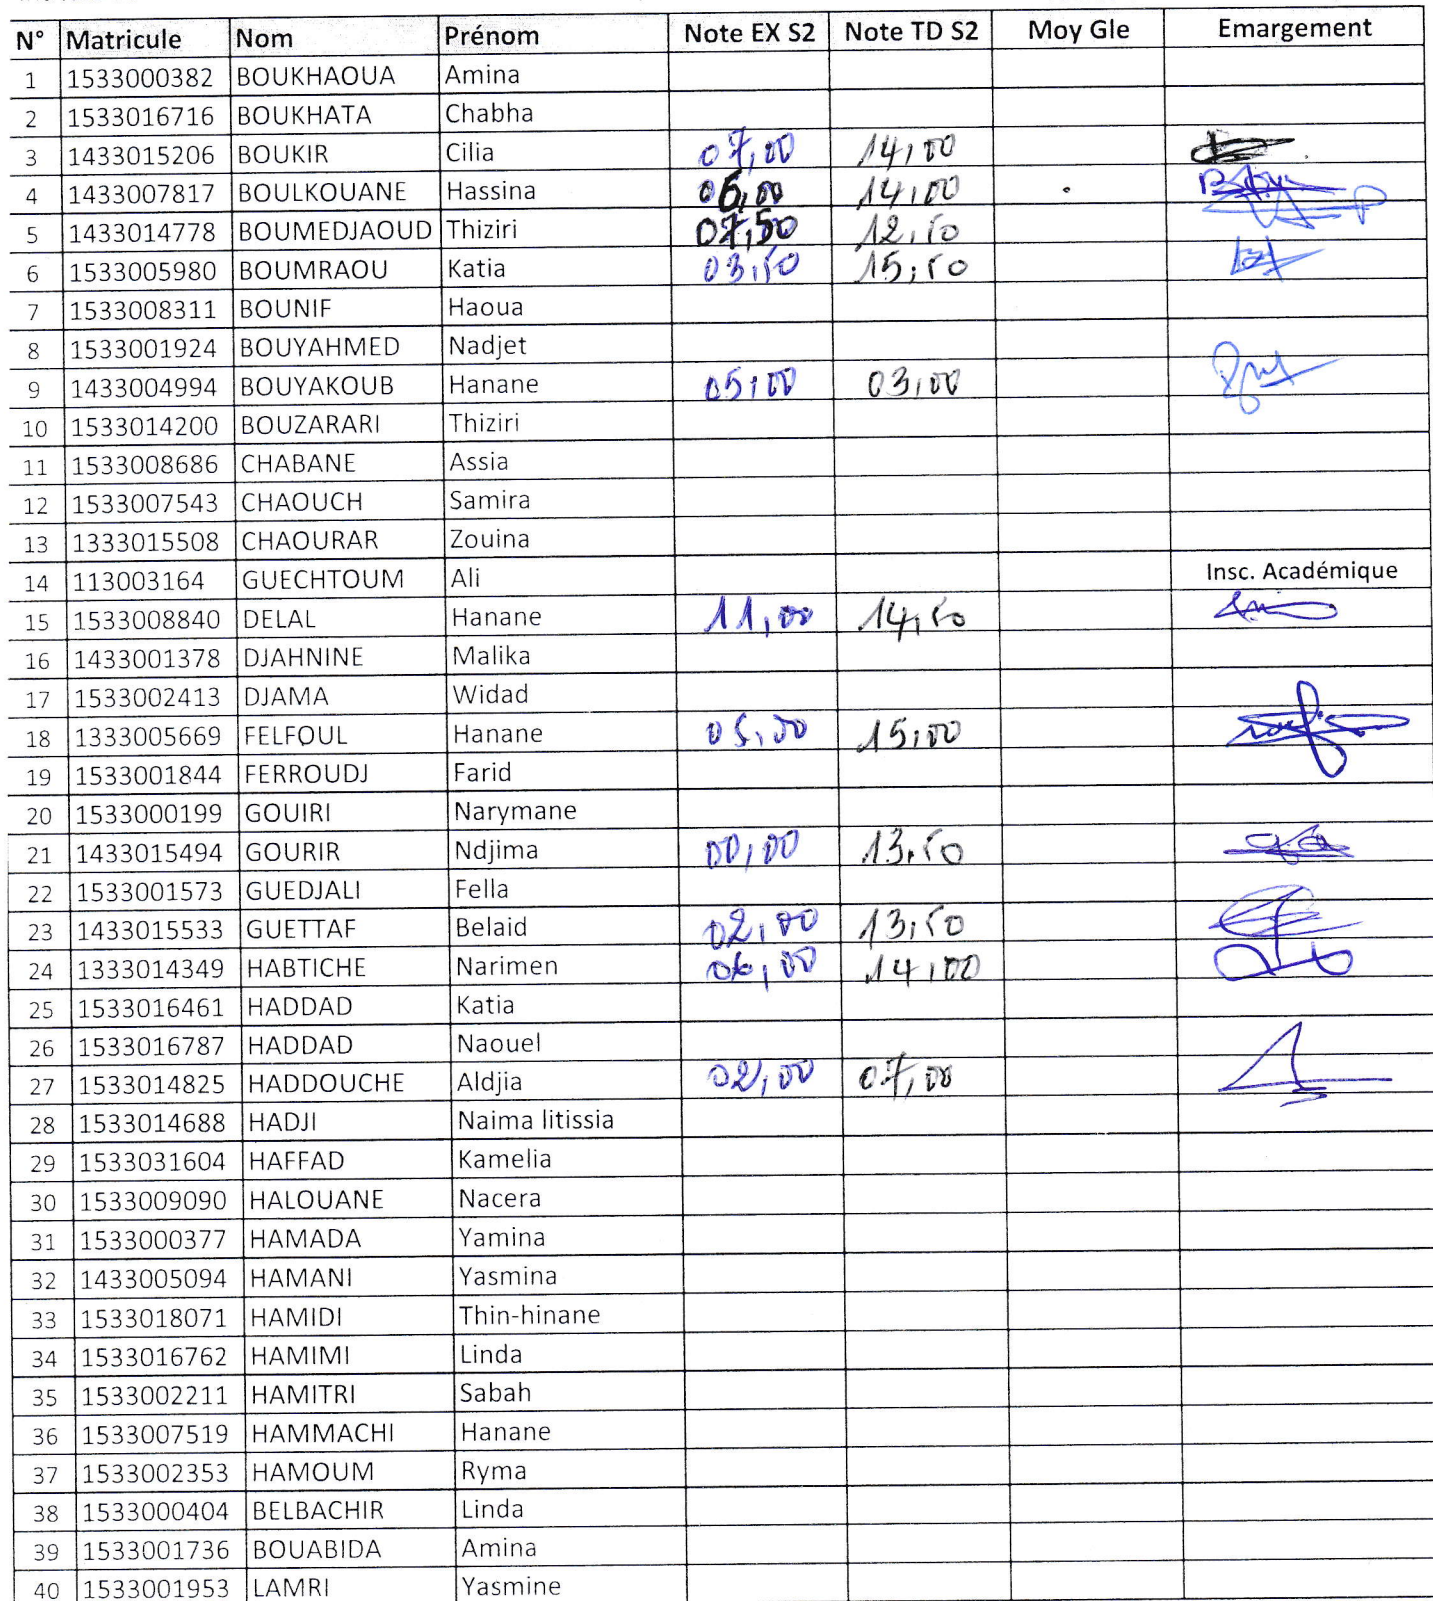 N° Matricule Nom Prénom Note EX S2 Note TD S2 Moy Gle Emargement
1 1533000382 BOUKHAOUA Amina
2 1533016716 BOUKHATA Chabha
3 1433015206 BOUKIR Cilia 07,00 14,00
4 1433007817 BOULKOUANE Hassina 06,00 14,00
5 1433014778 BOUMEDJAOUD Thiziri 07,50 12,50
6 1533005980 BOUMRAOU Katia 03,50 15,50
7 1533008311 BOUNIF Haoua
8 1533001924 BOUYAHMED Nadjet
9 1433004994 BOUYAKOUB Hanane 05,00 03,00
10 1533014200 BOUZARARI Thiziri
11 1533008686 CHABANE Assia
12 1533007543 CHAOUCH Samira
13 1333015508 CHAOURAR Zouina
14 113003164 GUECHTOUM Ali Insc. Académique
15 1533008840 DELAL Hanane 11,00 14,50
16 1433001378 DJAHNINE Malika
17 1533002413 DJAMA Widad
18 1333005669 FELFOUL Hanane 05,00 15,00
19 1533001844 FERROUDJ Farid
20 1533000199 GOUIRI Narymane
21 1433015494 GOURIR Ndjima 00,00 13,50
22 1533001573 GUEDJALI Fella
23 1433015533 GUETTAF Belaid 02,00 13,50
24 1333014349 HABTICHE Narimen 06,00 14,00
25 1533016461 HADDAD Katia
26 1533016787 HADDAD Naouel
27 1533014825 HADDOUCHE Aldjia 02,00 07,00
28 1533014688 HADJI Naima litissia
29 1533031604 HAFFAD Kamelia
30 1533009090 HALOUANE Nacera
31 1533000377 HAMADA Yamina
32 1433005094 HAMANI Yasmina
33 1533018071 HAMIDI Thin-hinane
34 1533016762 HAMIMI Linda
35 1533002211 HAMITRI Sabah
36 1533007519 HAMMACHI Hanane
37 1533002353 HAMOUM Ryma
38 1533000404 BELBACHIR Linda
39 1533001736 BOUABIDA Amina
40 1533001953 LAMRI Yasmine